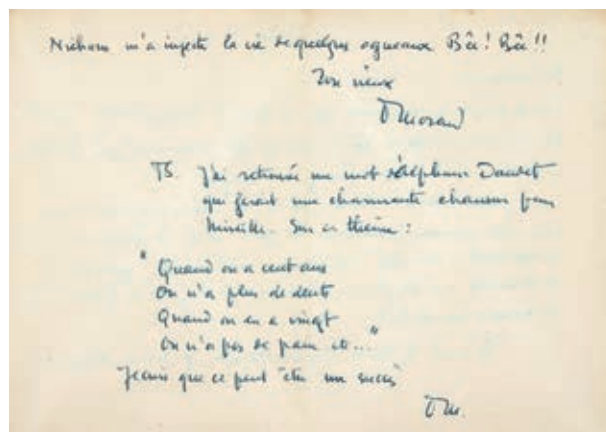 Niehans m'a injecté la vie de quelques agneaux Bê! Bê!!
Ton vieux
P Morand
PS. J'ai retrouvé un mot d'Alphonse Daudet
qui ferait une charmante chanson pour
Mireille. Sur ce thème :
"Quand on a cent ans
On n'a plus de dents
Quand on en a vingt
On n'a pas de pain etc..."
Je crois que ce peut être un succès
P M.